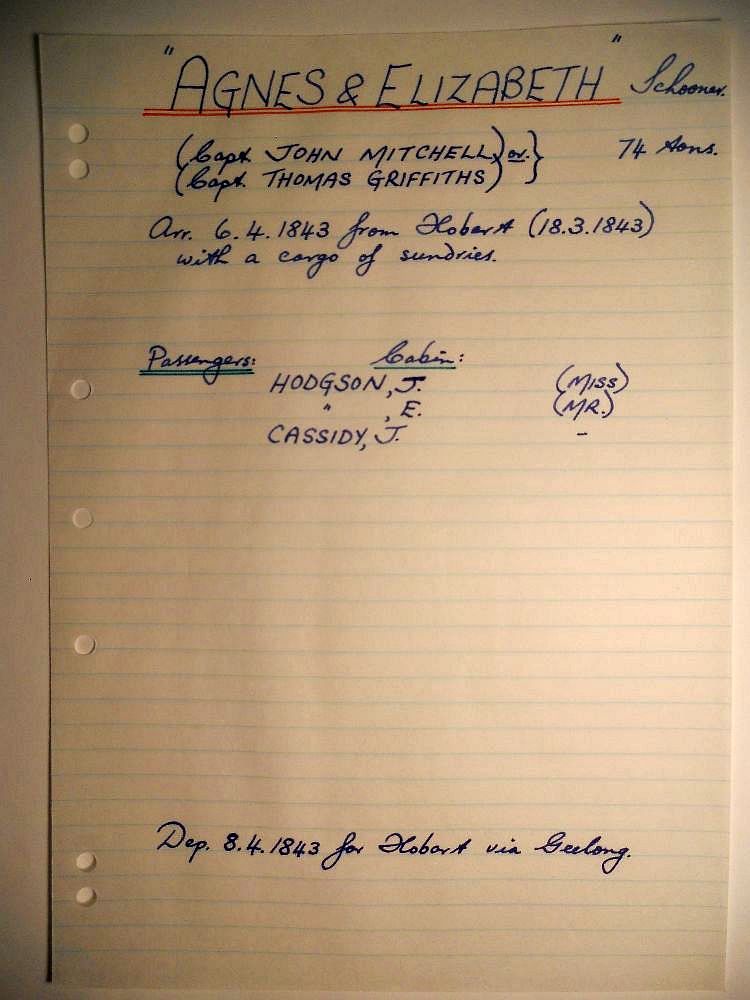 "AGNES & ELIZABETH" Schooner.
(Capt. JOHN MITCHELL) or. } 74 tons.
(Capt. THOMAS GRIFFITHS)
Arr. 6.4.1843 from Hobart (18.3.1843)
with a cargo of sundries.
Passengers: Cabin:
HODGSON, J. (MISS)
" , E. (MR.)
CASSIDY, J. -
Dep. 8.4.1843 for Hobart via Geelong.